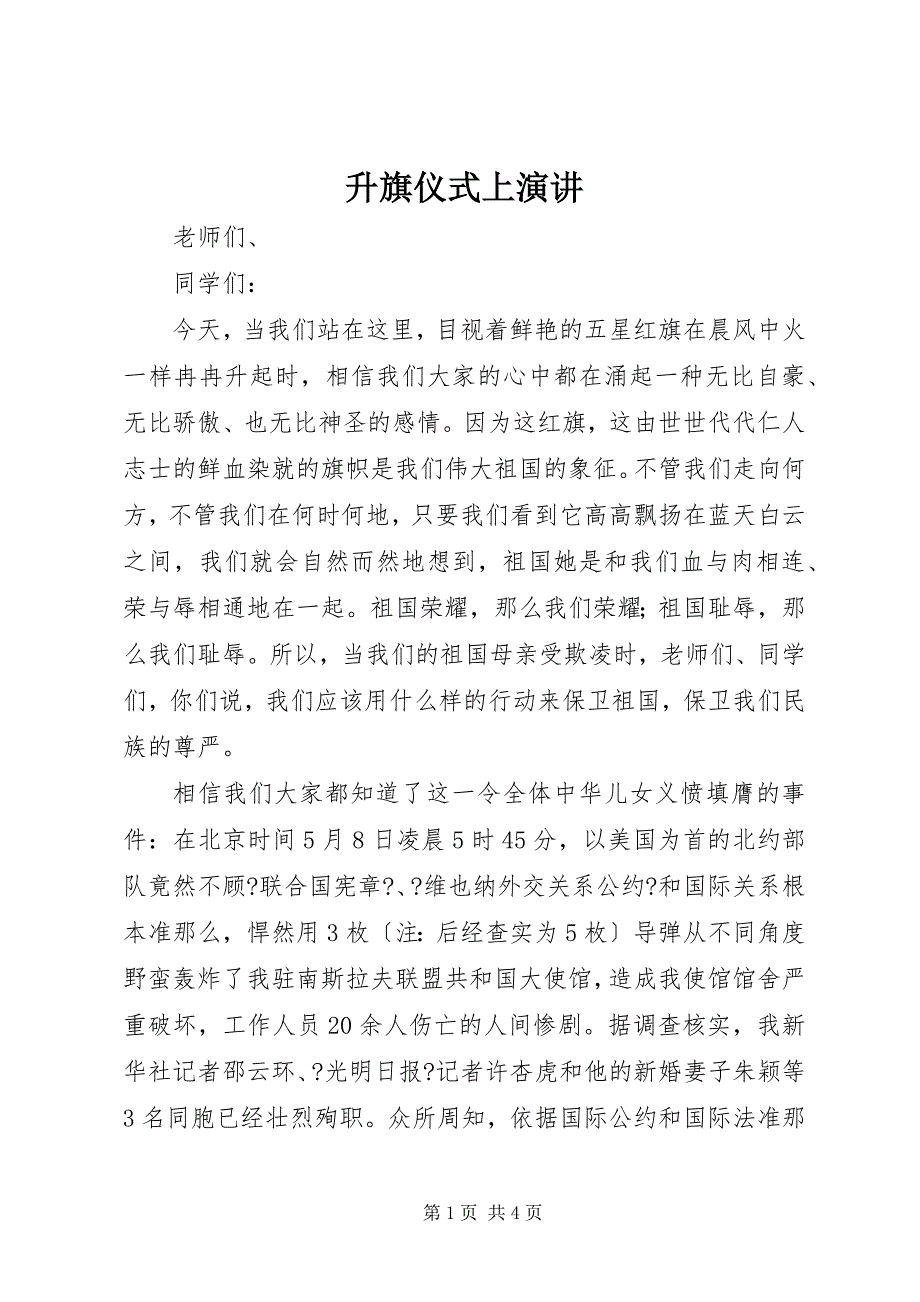 升旗仪式上演讲
老师们、
同学们：
今天，当我们站在这里，目视着鲜艳的五星红旗在晨风中火
一样冉冉升起时，相信我们大家的心中都在涌起一种无比自豪、
无比骄傲、也无比神圣的感情。因为这红旗，这由世世代代仁人
志士的鲜血染就的旗帜是我们伟大祖国的象征。不管我们走向何
方，不管我们在何时何地，只要我们看到它高高飘扬在蓝天白云
之间，我们就会自然而然地想到，祖国她是和我们血与肉相连、
荣与辱相通地在一起。祖国荣耀，那么我们荣耀；祖国耻辱，那
么我们耻辱。所以，当我们的祖国母亲受欺凌时，老师们、同学
们，你们说，我们应该用什么样的行动来保卫祖国，保卫我们民
族的尊严。
相信我们大家都知道了这一令全体中华儿女义愤填膺的事
件：在北京时间5月8日凌晨5时45分，以美国为首的北约部
队竟然不顾?联合国宪章?、?维也纳外交关系公约?和国际关系根
本准那么，悍然用3枚〔注：后经查实为5枚〕导弹从不同角度
野蛮轰炸了我驻南斯拉夫联盟共和国大使馆，造成我使馆馆舍严
重破坏，工作人员20余人伤亡的人间惨剧。据调查核实，我新
华社记者邵云环、?光明日报?记者许杏虎和他的新婚妻子朱颖等
3名同胞已经壮烈殉职。众所周知，依据国际公约和国际法准那
第1页 共4页